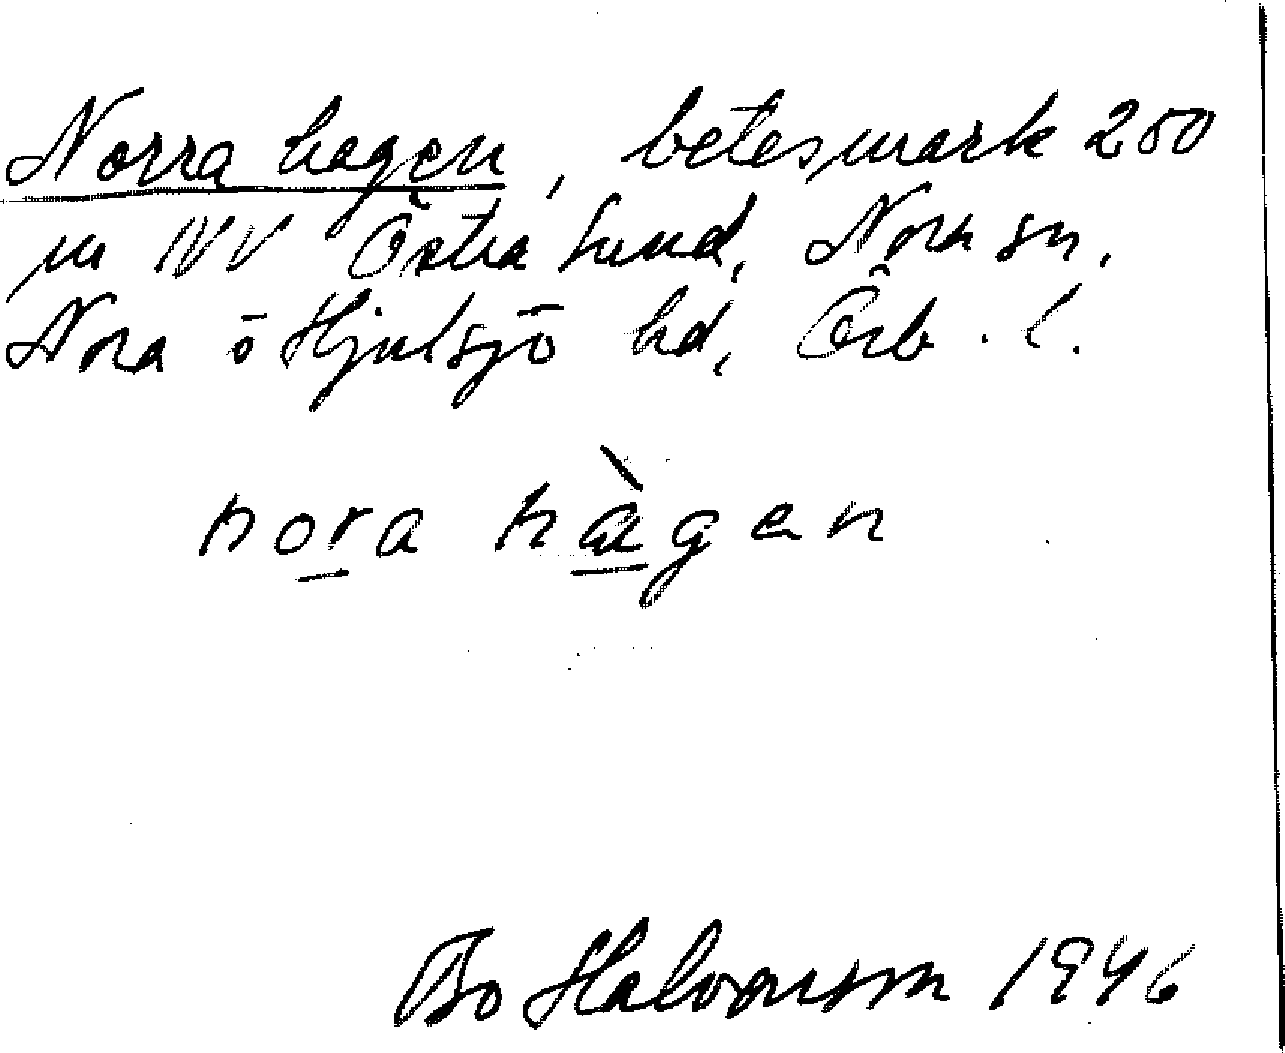 Norra hagen, betesmark 250
m NV Östra Sund, Nora sn,
Nora o Hjulsjö hd, Örb. l.
nora hàgen
Bo Halvarsson 1946